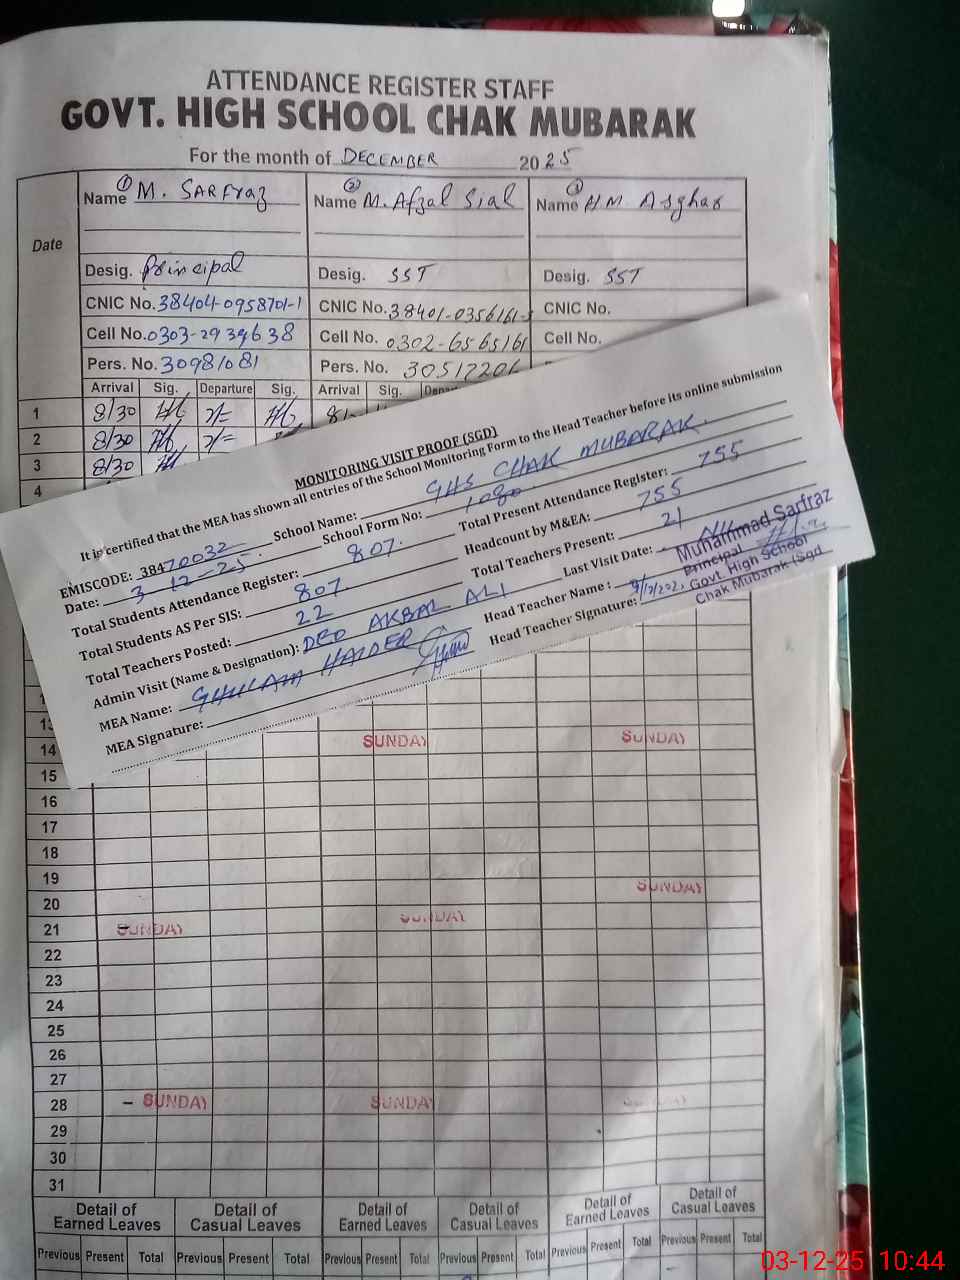 ATTENDANCE REGISTER STAFF
GOVT. HIGH SCHOOL CHAK MUBARAK
For the month of DECEMBER 2025
Date
① Name M. SARFraz ② Name M. Afzal Sial ③ Name HM Asghar
Desig. Principal Desig. SST Desig. SST
CNIC No. 38404-0958701-1 CNIC No. 38401-0356161- CNIC No.
Cell No. 0303-2939638 Cell No. 0302-6565161 Cell No.
Pers. No. 30981081 Pers. No. 30517206
Arrival Sig. Departure Sig. Arrival Sig.
1 8/30
2 8/30
3 8/30
4
MONITORING VISIT PROOF (SGD)
It is certified that the MEA has shown all entries of the School Monitoring Form to the Head Teacher before its online submission
EMISCODE: 38470032 School Name: GHS CHAK MUBARAK
Date: 3-12-25. School Form No: 1080
Total Students Attendance Register: 807. Total Present Attendance Register: 755
Total Students AS Per SIS: 807 Headcount by M&EA: 755
Total Teachers Posted: 22 Total Teachers Present: 21
Admin Visit (Name & Designation): DEO AKBAR ALI Last Visit Date:
MEA Name: GHULAM HAIDER Head Teacher Name :
MEA Signature: Head Teacher Signature:
Muhammad Sarfraz
Principal
Govt. High School
Chak Mubarak (Sgd
13
14 SUNDAY SUNDAY
15
16
17
18
19 SUNDAY
20
21 SUNDAY SUNDAY
22
23
24
25
26
27
28 – SUNDAY SUNDAY SUNDAY
29
30
31
Detail of Earned Leaves Detail of Casual Leaves Detail of Earned Leaves Detail of Casual Leaves Detail of Earned Leaves Detail of Casual Leaves
Previous Present Total Previous Present Total Previous Present Total Previous Present Total Previous Present Total Previous Present Total
03-12-25 10:44